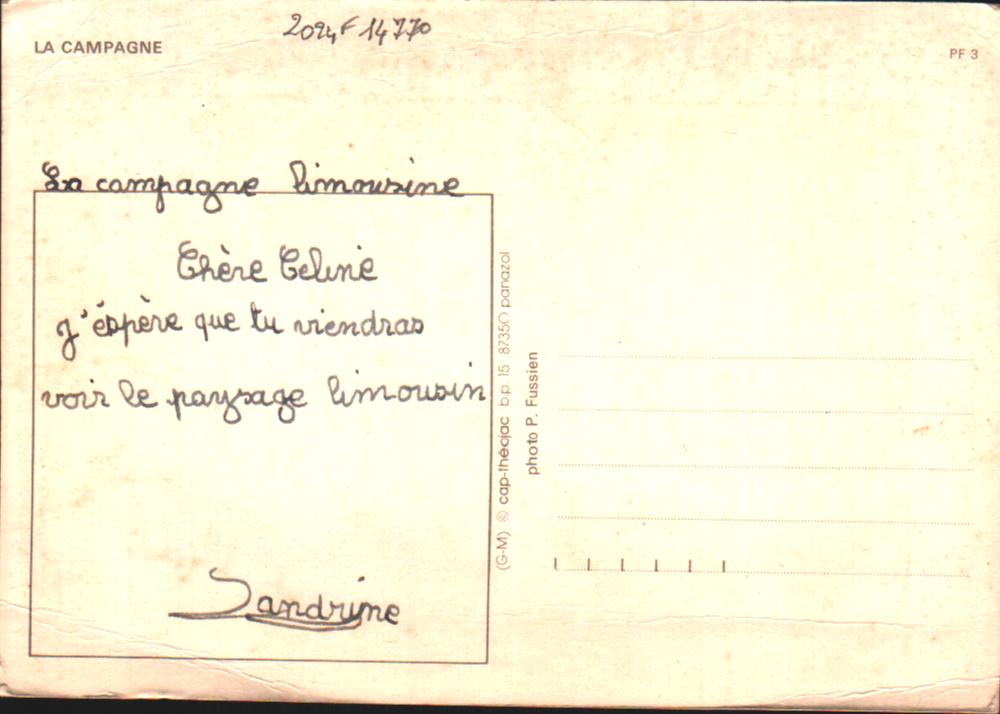 2024F 14770
LA CAMPAGNE
PF 3
La campagne limousine
Chère Celine
J'éspère que tu viendras
voir le paysage limousin
Sandrine
(G-M) © cap-théojac b.p. 15 87350 panazol
photo P. Fussien